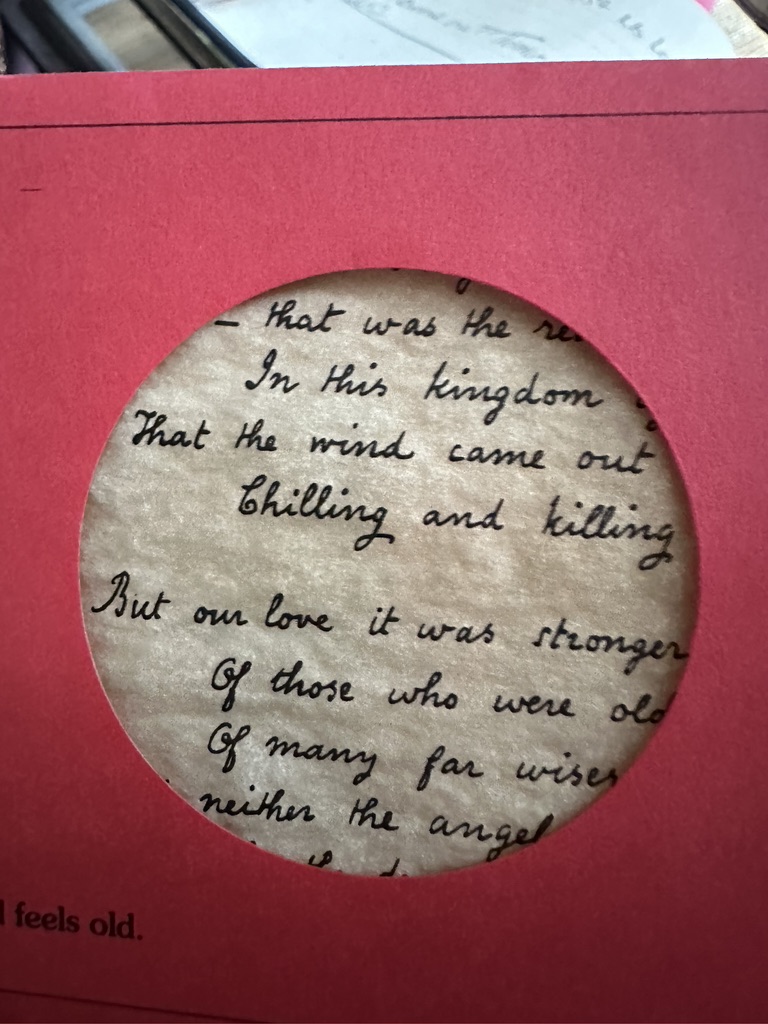 – that was the
In this kingdom
That the wind came out
Chilling and killing
But our love it was stronger
Of those who were old
Of many far wiser
neither the angel
feels old.